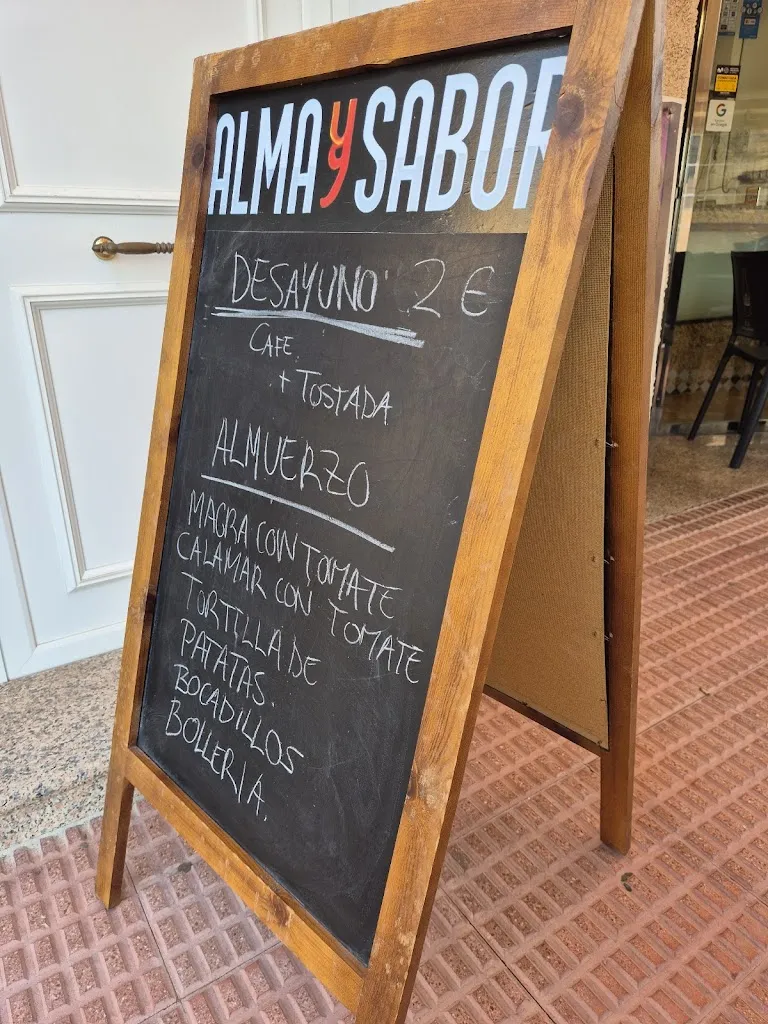 ALMA Y SABOR
DESAYUNO 2 €
CAFE
+ TOSTADA
ALMUERZO
MAGRA CON TOMATE
CALAMAR CON TOMATE
TORTILLA DE
PATATAS.
BOCADILLOS
BOLLERIA.
G